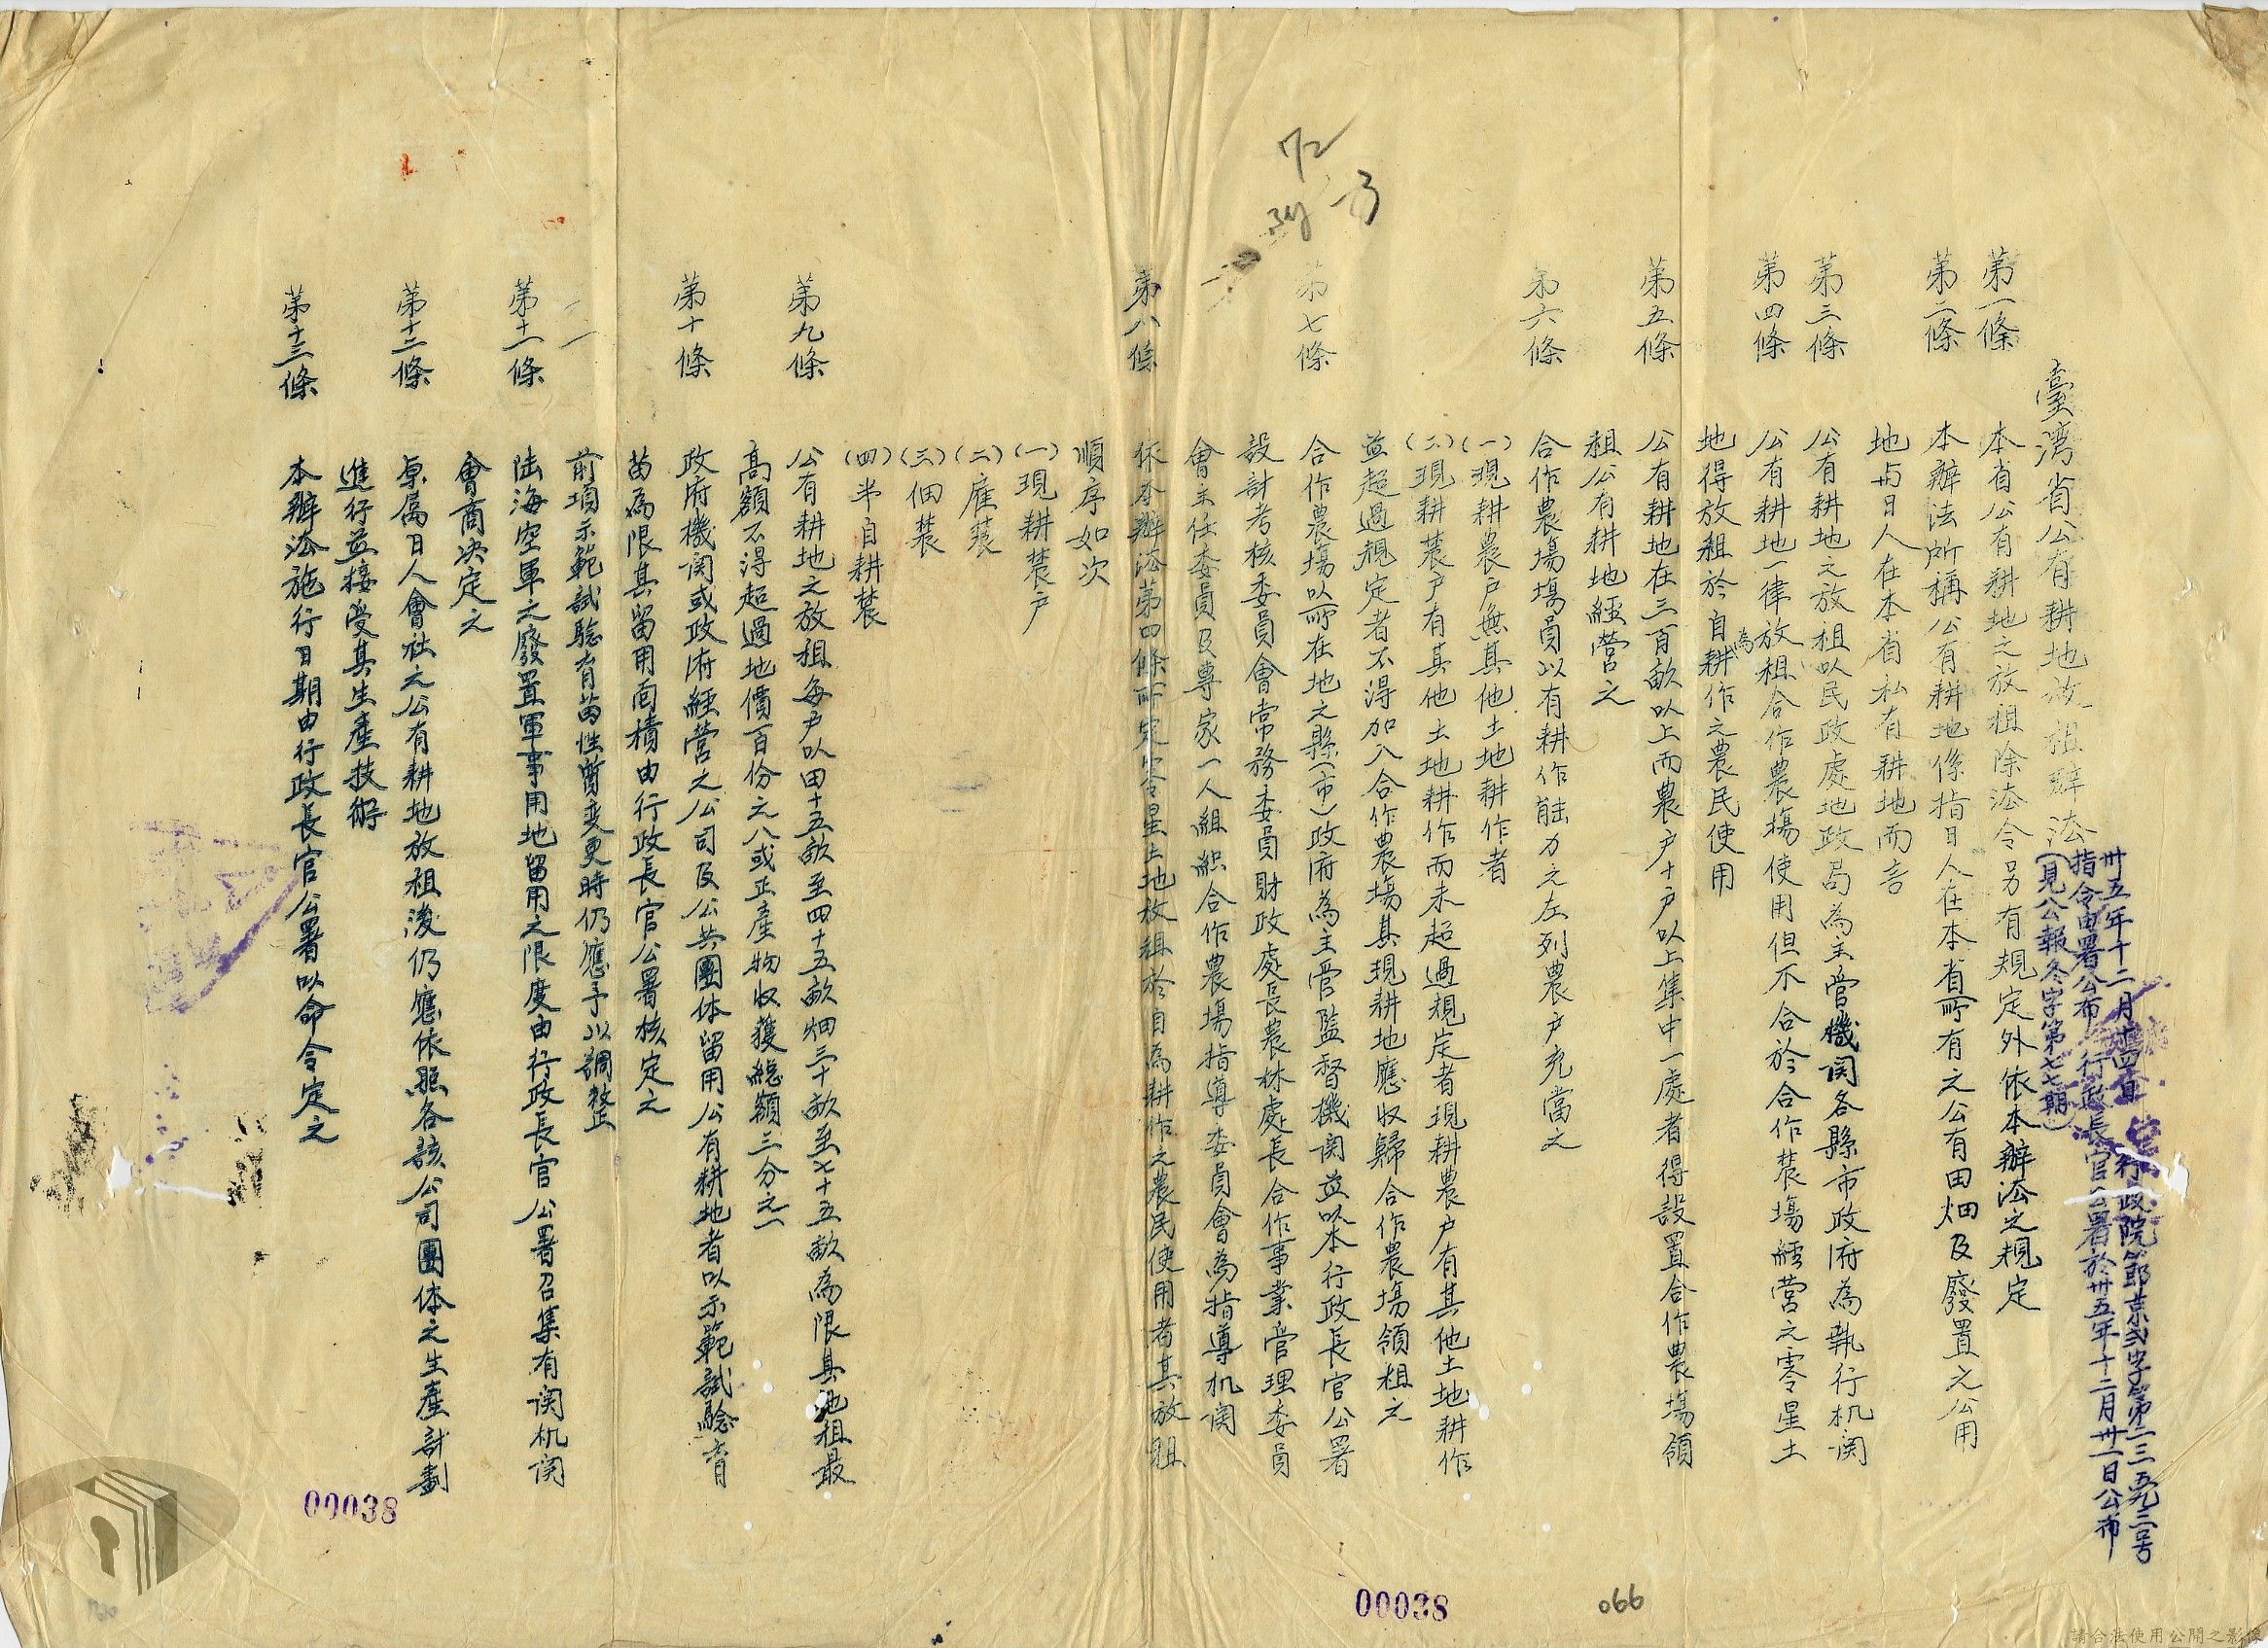 臺湾省公有耕地放租辦法
卅五年十二月十四日行政院節京弍字第二三五九三号
指令由署公布 行政長官公署於卅五年十二月卅一日公布
(見公報冬字第七七期)
第一條 本省公有耕地之放租除法令另有規定外依本辦法之規定
第二條 本辦法所稱公有耕地係指日人在本省所有之公有田畑及廢置之公用
地与日人在本省私有耕地而言
第三條 公有耕地之放租以民政處地政局為主管機関各縣市政府為執行机関
第四條 公有耕地一律放租合作農塲使用但不合於合作農塲經营之零星土
地得放租於自為耕作之農民使用
第五條 公有耕地在三百畝以上而農户十户以上集中一處者得設置合作農塲領
租公有耕地經营之
第六條 合作農塲塲員以有耕作能力之左列農户充當之
(一)現耕農户無其他土地耕作者
(二)現耕農户有其他土地耕作而未超過規定者現耕農户有其他土地耕作
並超過規定者不得加入合作農塲其現耕地應收歸合作農塲領租之
第七條 合作農塲以所在地之縣(市)政府為主管監督機関並以本行政長官公署
設計考核委員會常務委員財政處長農林處長合作事業管理委員
會主任委員及專家一人組織合作農塲指導委員會為指導机関
第八條 依本辦法第四條所定零星土地放租於自為耕作之農民使用者其放租
順序如次
(一)現耕農户
(二)雇農
(三)佃農
(四)半自耕農
第九條 公有耕地之放租每户以田十五畝至四十五畝畑三十畝至七十五畝為限其地租最
高額不得超過地價百份之八或正產物收獲總額三分之一
第十條 政府機関或政府經营之公司及公共團体留用公有耕地者以示範試驗育
苗為限其留用面積由行政長官公署核定之
前項示範試驗育苗性質变更時仍應予以調整
第十一條 陆海空軍之廢置軍事用地留用之限度由行政長官公署召集有関机関
會商决定之
第十二條 原属日人會社之公有耕地放租後仍應依照各該公司團体之生產計劃
進行並接受其生產技術
第十三條 本辦法施行日期由行政長官公署以命令定之
00038
00038
066
請合法使用公開之影像